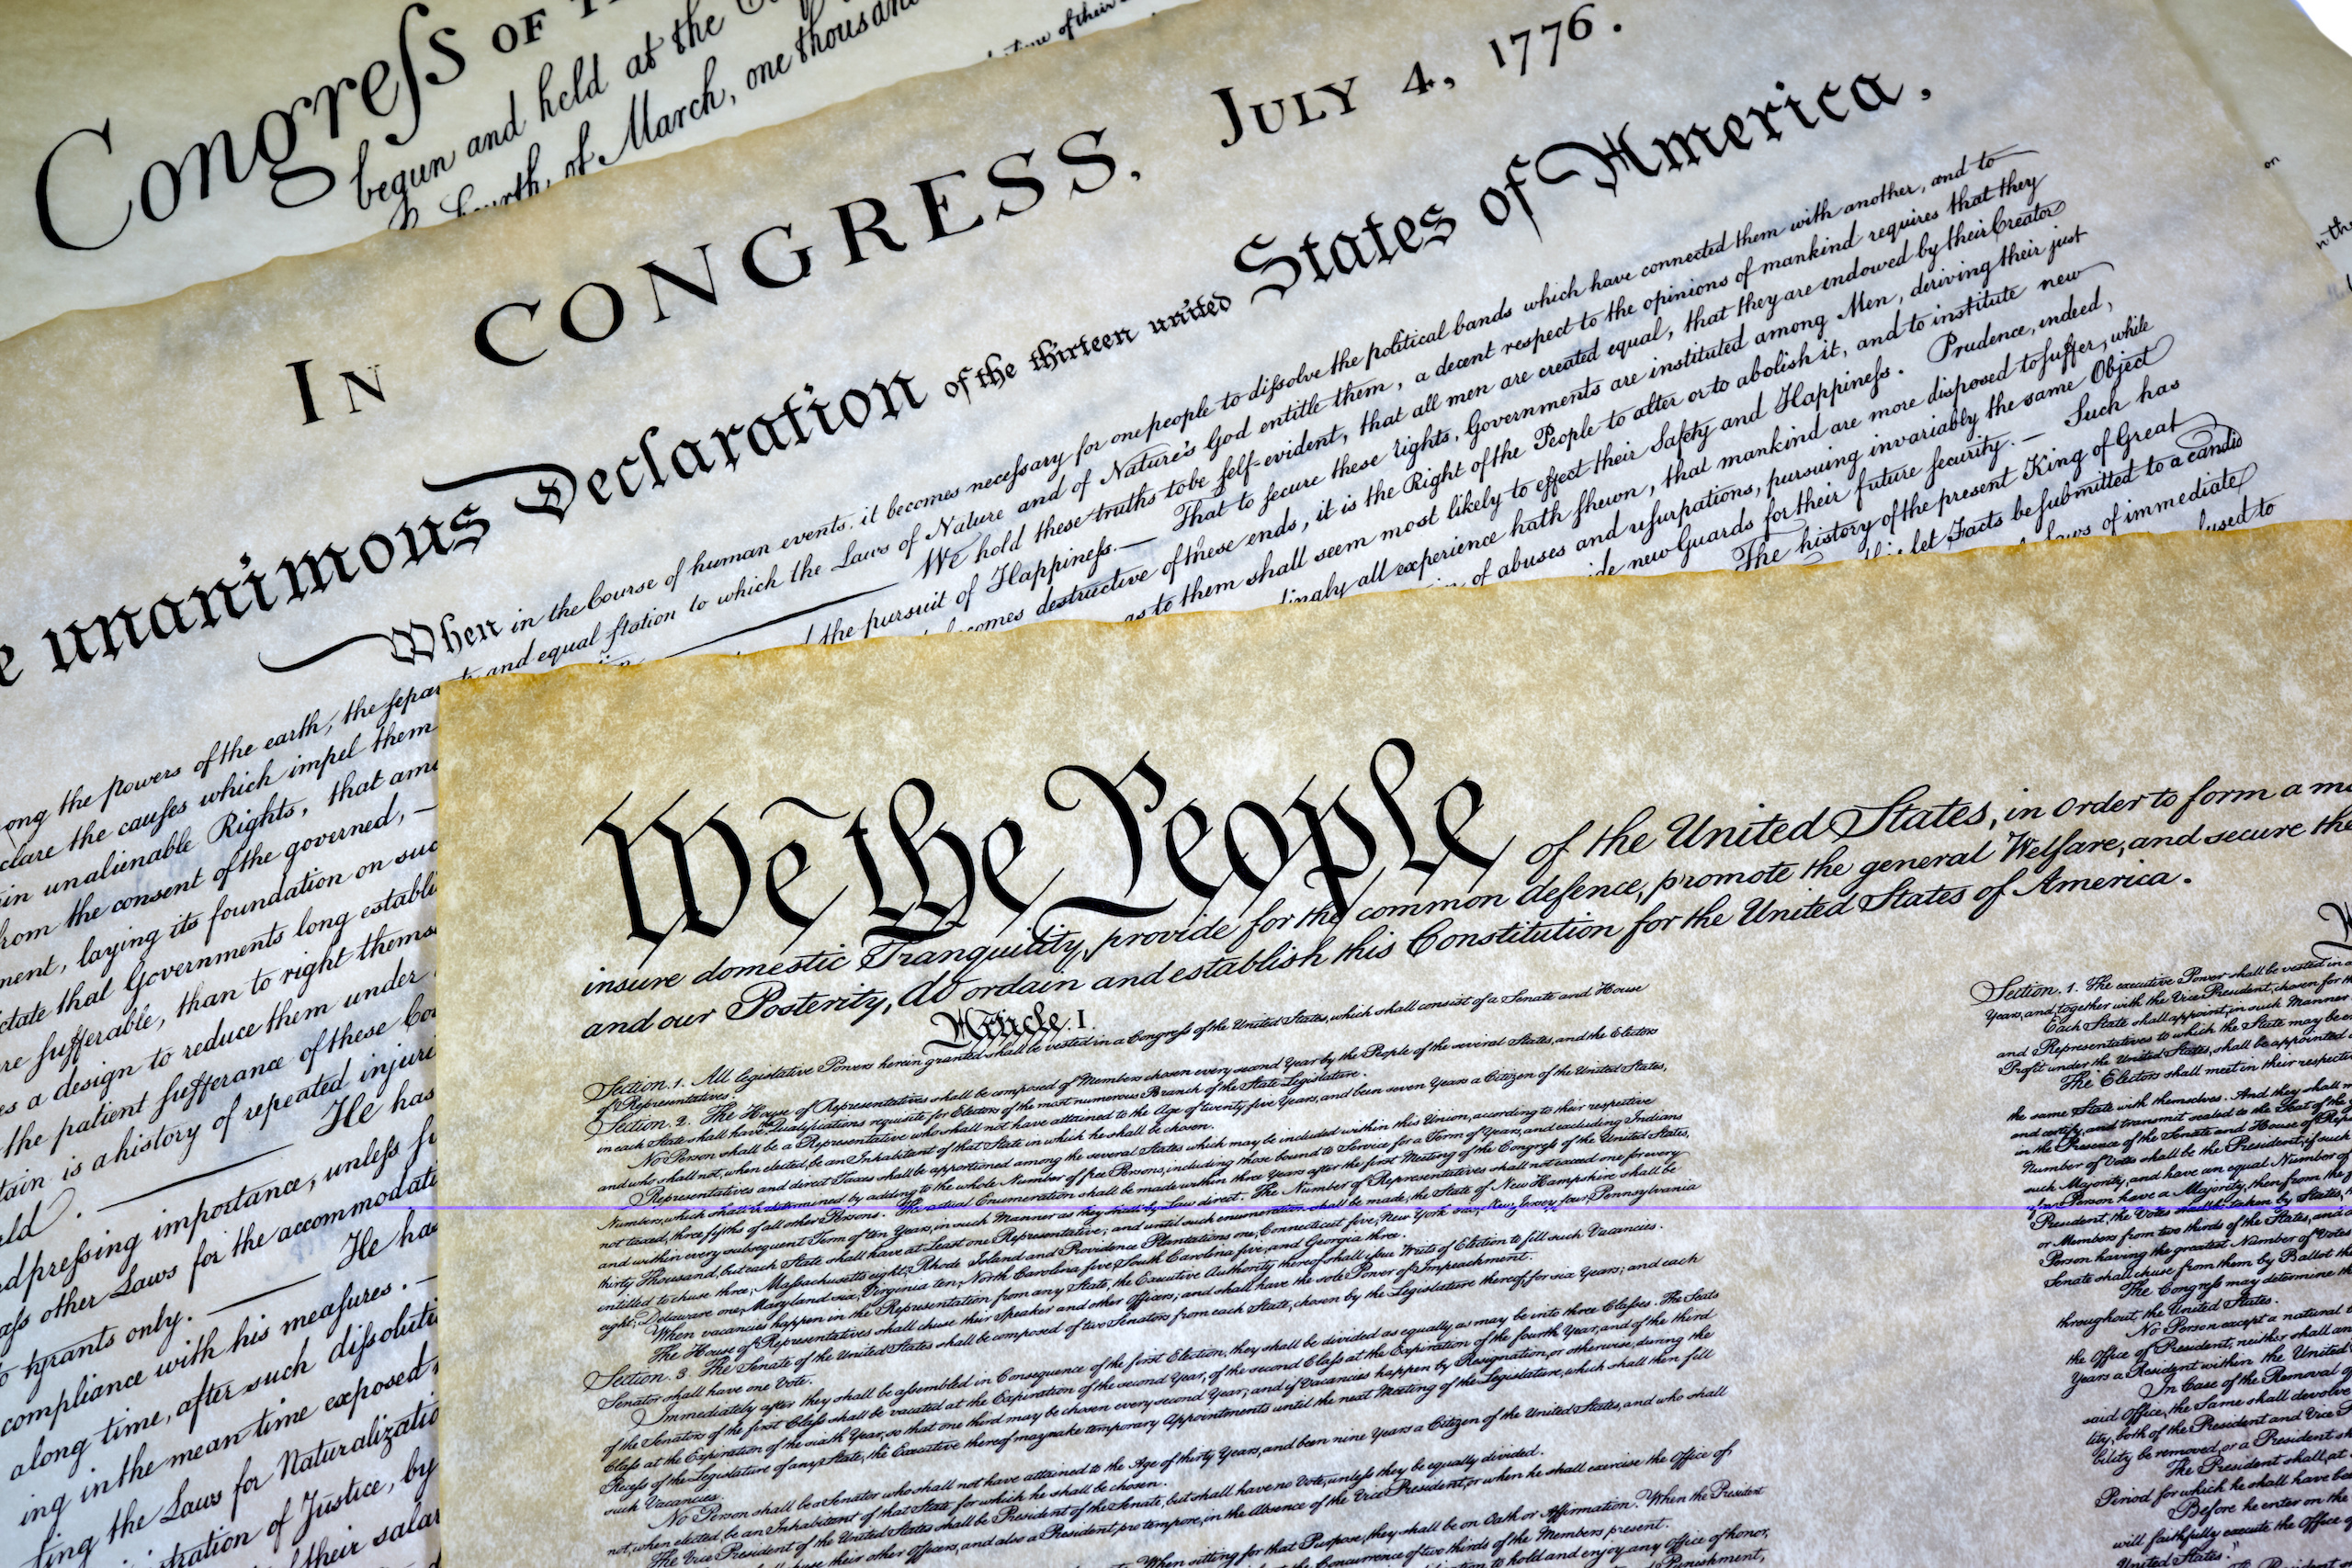 Congreſs OF
begun and held at the
of March, one thousand
IN CONGRESS, JULY 4, 1776.
unanimous Declaration of the thirteen united States of America,
When in the Course of human events, it becomes neceſsary for one people to diſsolve the political bands which have connected them with another, and to
ong the powers of the earth, the ſepar and equal ſtation to which the Laws of Nature and of Nature's God entitle them, a decent respect to the opinions of mankind requires that they
clare the cauſes which impel them We hold these truths to be ſelf-evident, that all men are created equal, that they are endowed by their Creator
in unalienable Rights, that amo the pursuit of Happineſs. — That to ſecure these rights, Governments are instituted among Men, deriving their just
rom the consent of the governed, — comes destructive of these ends, it is the Right of the People to alter or to abolish it, and to institute new
ment, laying its foundation on suc as to them shall seem most likely to effect their Safety and Happineſs. Prudence, indeed,
ctate that Governments long establi dingly all experience hath ſhewn, that mankind are more disposed to ſuffer, while
re ſufferable, than to right thems of abuses and uſurpations, pursuing invariably the same Object
es a design to reduce them under de new Guards for their future ſecurity. — Such has
the patient ſufferance of these Co The history of the present King of Great
tain is a history of repeated injuri let Facts be ſubmitted to a candid
ld. He has Laws of immediate
nd preſsing importance, unleſs ſu used to
aſs other Laws for the accommodati
tyrants only. He ha
compliance with his meaſures. —
along time, after such diſsoluti
ing in the mean time exposed
ting the Laws for Naturalizatio
tration of Justice, by
their salar
We the People of the United States, in Order to form a m
insure domestic Tranquility, provide for the common defence, promote the general Welfare, and secure the
and our Posterity, do ordain and establish this Constitution for the United States of America.
Article. I.
Section. 1. All legislative Powers herein granted shall be vested in a Congreſs of the United States, which shall consist of a Senate and House
of Representatives.
Section. 2. The House of Representatives shall be composed of Members chosen every second Year by the People of the several States, and the Electors
in each State shall have Qualifications requisite for Electors of the most numerous Branch of the State Legislature.
No Person shall be a Representative who shall not have attained to the Age of twenty five Years, and been seven Years a Citizen of the United States,
and who shall not, when elected, be an Inhabitant of that State in which he shall be chosen.
Representatives and direct Taxes shall be apportioned among the several States which may be included within this Union, according to their respective
Numbers, which shall be determined by adding to the whole Number of free Persons, including those bound to Service for a Term of Years, and excluding Indians
not taxed, three fifths of all other Persons. The actual Enumeration shall be made within three Years after the first Meeting of the Congreſs of the United States,
and within every subsequent Term of ten Years, in such Manner as they shall by Law direct. The Number of Representatives shall not exceed one for every
thirty Thousand, but each State shall have at Least one Representative; and until such enumeration shall be made, the State of New Hampshire shall be
entitled to chuse three, Maſsachusetts eight, Rhode Island and Providence Plantations one, Connecticut five, New York six, New Jersey four, Pennsylvania
eight, Delaware one, Maryland six, Virginia ten, North Carolina five, South Carolina five, and Georgia three.
When vacancies happen in the Representation from any State, the Executive Authority thereof shall iſsue Writs of Election to fill such Vacancies.
The House of Representatives shall chuse their Speaker and other Officers; and shall have the sole Power of Impeachment.
Section. 3. The Senate of the United States shall be composed of two Senators from each State, chosen by the Legislature thereof, for six Years; and each
Senator shall have one Vote.
Immediately after they shall be aſsembled in Consequence of the first Election, they shall be divided as equally as may be into three Claſses. The Seats
of the Senators of the first Claſs shall be vacated at the Expiration of the second Year, of the second Claſs at the Expiration of the fourth Year, and of the third
Claſs at the Expiration of the sixth Year, so that one third may be chosen every second Year; and if Vacancies happen by Resignation, or otherwise, during the
Receſs of the Legislature of any State, the Executive thereof may make temporary Appointments until the next Meeting of the Legislature, which shall then fill
such Vacancies.
No Person shall be a Senator who shall not have attained to the Age of thirty Years, and been nine Years a Citizen of the United States, and who shall
not, when elected, be an Inhabitant of that State for which he shall be chosen.
The Vice President of the United States shall be President of the Senate, but shall have no Vote, unleſs they be equally divided.
their other Officers, and also a President pro tempore, in the Absence of the Vice President, or when he shall exercise the Office of
When sitting for that Purpose, they shall be on Oath or Affirmation. When the President
the Concurrence of two thirds of the Members present.
to hold and enjoy any Office of honor,
Section. 1. The executive Power shall be vested in a
Years, and, together with the Vice President, chosen for th
Each State shall appoint, in such Manner
and Representatives to which the State may be
Profit under the United States, shall be appointed
The Electors shall meet in their respecti
the same State with themselves. And they shall m
and certify, and transmit sealed to the Seat of the
in the Presence of the Senate and House of Repr
Number of Votes shall be the President, if such
such Majority, and have an equal Number of
Person have a Majority, then from the
President, the Votes shall be taken by States,
or Members from two thirds of the States, and
Person having the greatest Number of Votes
Senate shall chuse from them by Ballot th
The Congreſs may determine th
throughout the United States.
No Person except a natural
the Office of President, neither shall an
Years a Resident within the United
In Case of the Removal of
said Office, the Same shall devolve
lity, both of the President and Vice
bility be removed, or a President sh
The President shall, at
Period for which he shall have bee
Before he enter on the
will faithfully execute the Office o
United States."